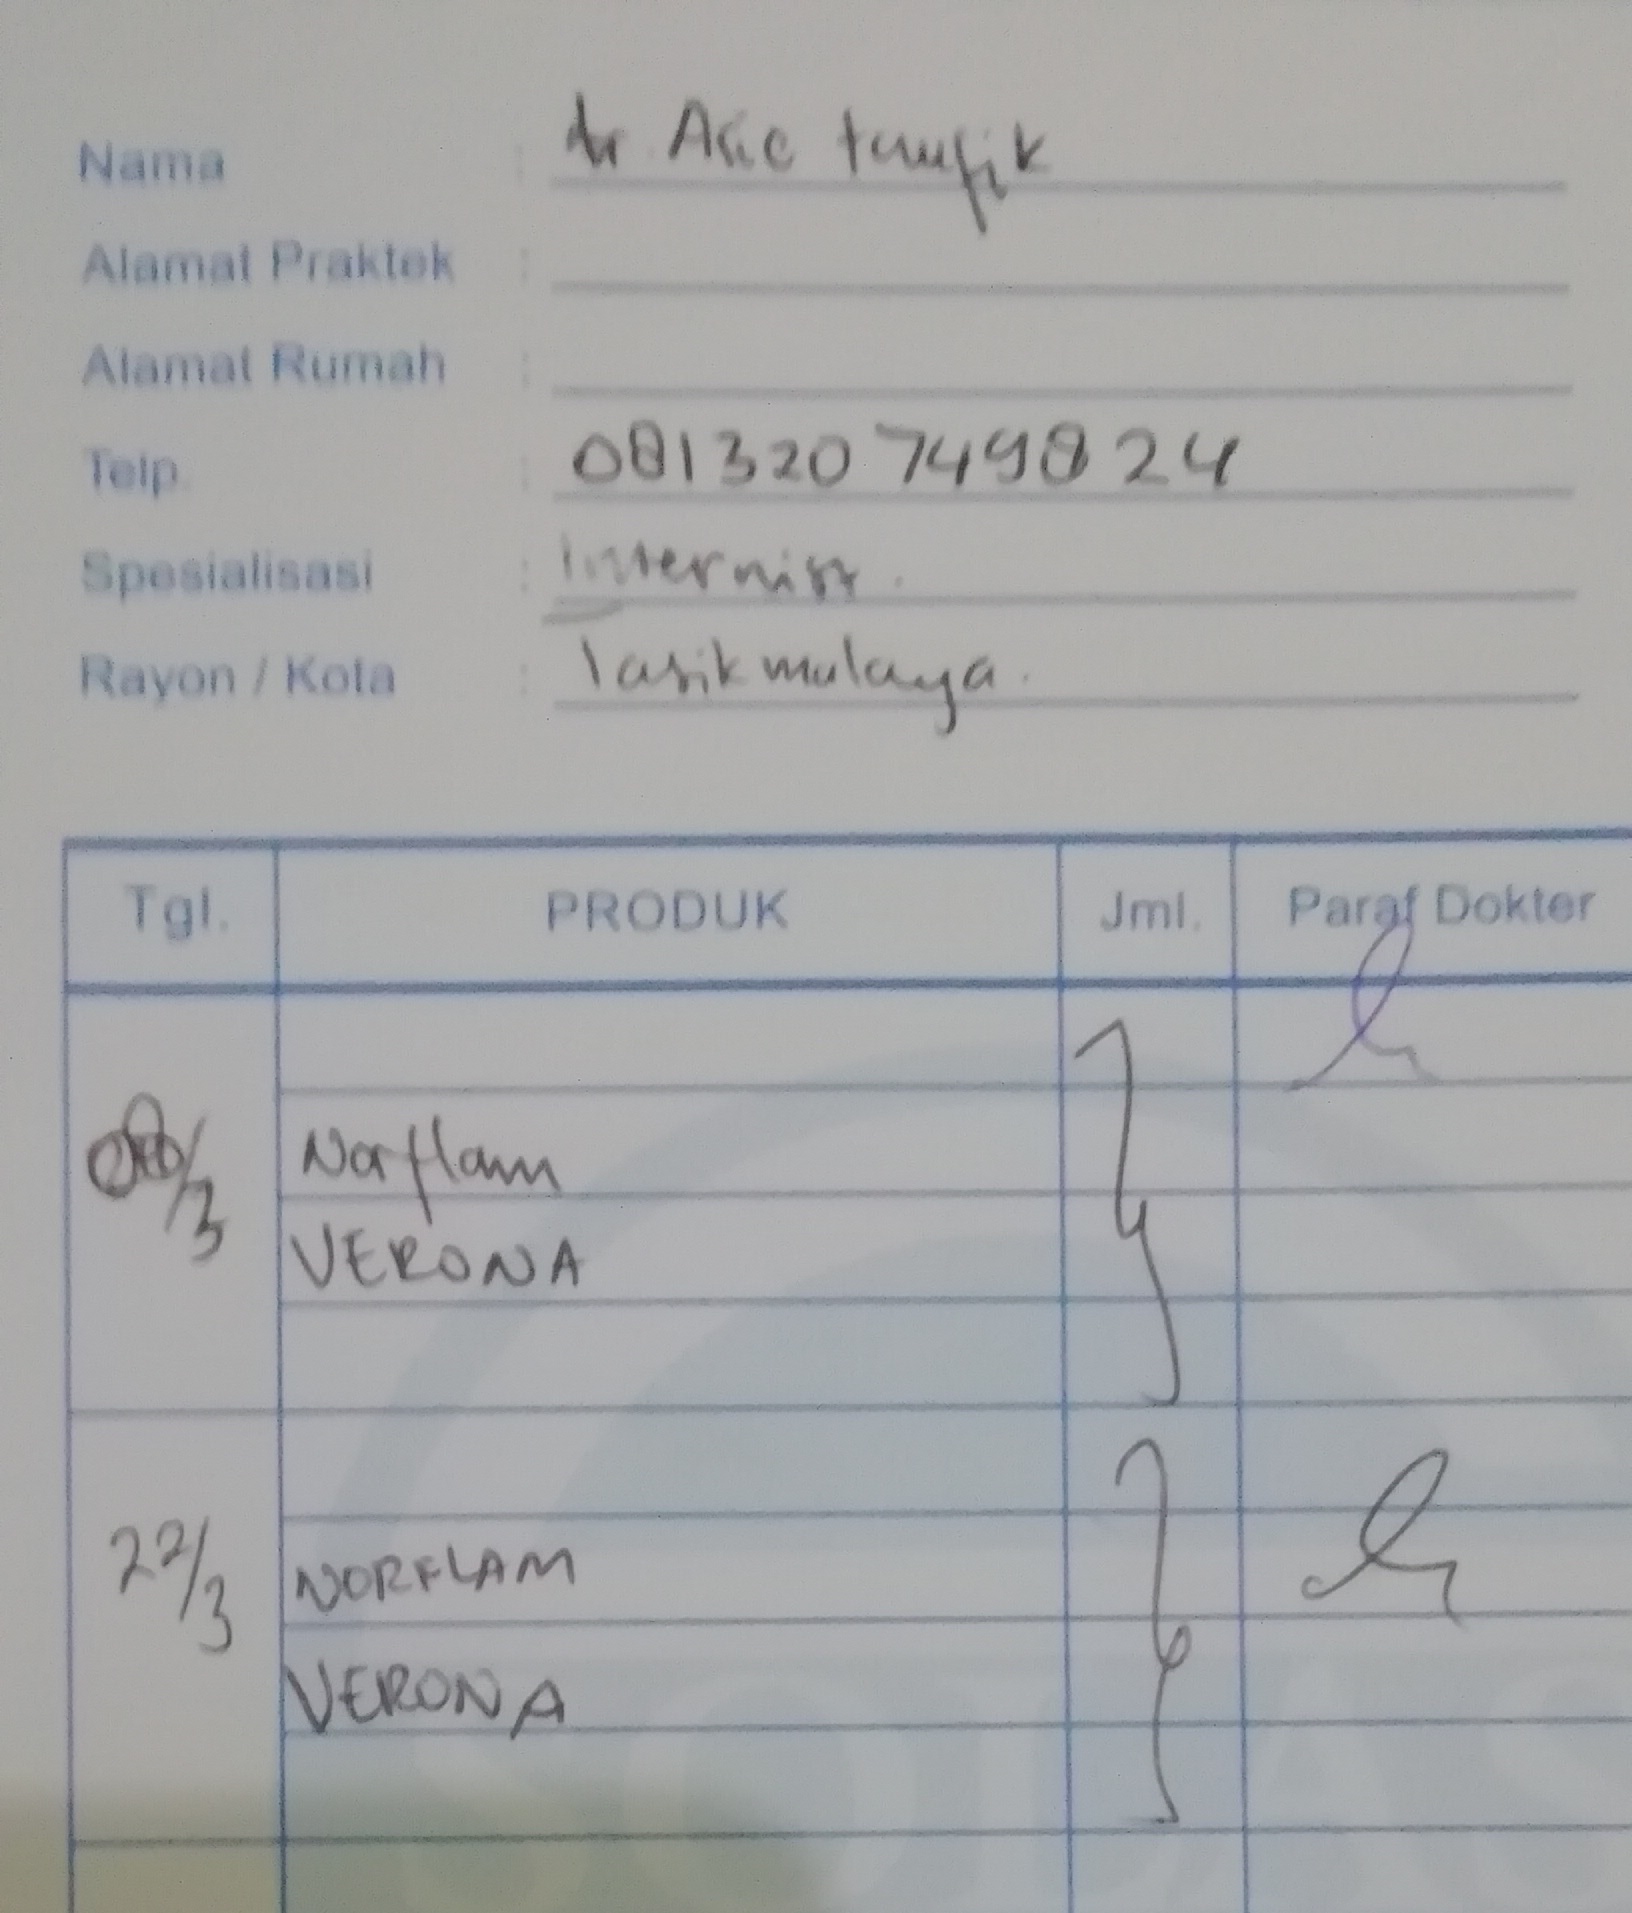 Nama : dr Asic taufik
Alamat Praktek :
Alamat Rumah :
Telp. : 081320 749824
Spesialisasi : Internist.
Rayon / Kota : Tasikmalaya.
Tgl. PRODUK Jml. Paraf Dokter
/3 Norflam
VERONA
22/3 NORFLAM
VERONA